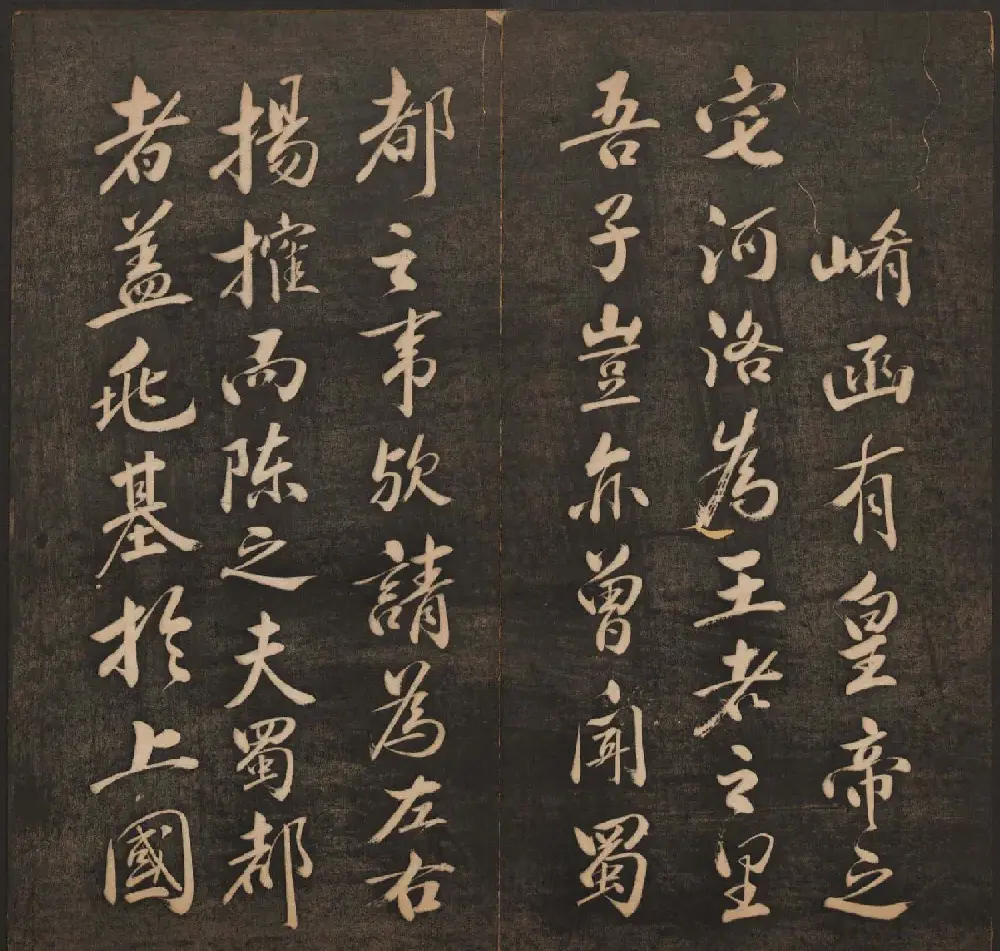 崤函有皇帝之
宅河洛為王者之里
吾子豈亦曾聞蜀
都之事歟請為左右
揚搉而陳之夫蜀都
者蓋兆基於上國